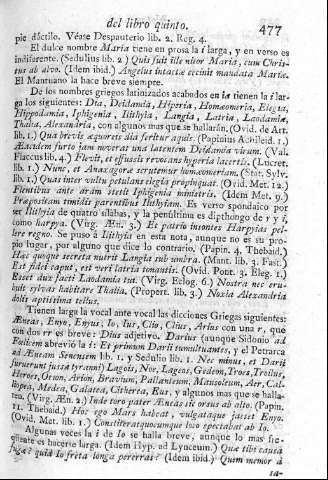 del libro quinto. 477
pie dáctilo. Véase Despauterio lib. 2. Reg. 4.
El dulce nombre Maria tiene en prosa la i larga, y en verso es
indiferente. (Sedulius lib. 2) Quis fuit ille nitor Mariæ, cum Chris-
tus ab alvo. (Idem ibid.) Angelus intactæ cecinit mandata Mariæ.
El Mantuano la hace breve siempre.
De los nombres griegos latinizados acabados en ia tienen la i lar-
ga los siguientes: Dia, Deidamia, Hiperia, Homœomeria, Elegia,
Hippodamia, Iphigenia, Ilithyia, Langia, Latria, Laodamia,
Thalia, Alexandria, con algunos mas que se hallarán. (Ovid. de Art.
lib. 1.) Qua brevis æquoreis dia feritur aquis. (Papinius Achileid. 1.)
Æacidem furto jam noverat una latentem Deidamia virum. (Val.
Flaccus lib. 4.) Flevit, et effussis revocans hyperia lacertis. (Lucret.
lib. 1.) Nunc, et Anaxagoræ scrutemur homœomeriam. (Stat. Sylv.
lib. 1.) Quas inter vultu petulans elegia propinquat. (Ovid. Met. 12.)
Flentibus ante aram stetit Iphigenia ministris. (Idem Met. 9.)
Præpositam timidis parentibus Ilithyiam. Es verso spondaico por
ser Ilithyia de quatro sílabas, y la penúltima es dipthongo de y i,
como harpya. (Virg. Æn. 3.) Et patrio insontes Harpyias pel-
lere regno. Se puso à Ilithyia en esta nota, aunque no es su pro-
pio lugar, por alguno que dice lo contrario. (Papin. 4. Thebaid.)
Hac quoque secreta nutrit Langia sub umbra. (Mant. lib. 3. Fast.)
Est fidei caput, est veri latria tonantis. (Ovid. Pont. 3. Eleg. 1.)
Si comes
Laodamia tui. (Virg. Eclog. 6.) Nostra nec eru-
buit sylvas habitare Thalia. (Propert. lib. 3.) Noxia Alexandria
dolis aptissima tellus.
Tienen larga la vocal ante vocal las dicciones Griegas siguientes:
Æneas, Enyo, Enyus, Io, Ius, Clio, Clius, Arius con una r, que
con dos rr es breve: Dius adjetivo. Darius (aunque Sidonio ad
abrevió la i: Et primum Darii tumultuantes, y el Petrarca
ad Æneam Senensem lib. 1. y Sedulio lib. 1. Nec minus, et Darii
jusserunt jussa tyranni) Lagois, Nos, Lageos, Gedeon, Troes, Troilus,
Heroes, Orion, Arion, Bravium, Pallanteum, Mausoleum, Aer, Cal-
liopea, Medea, Galatea, Citherea, Eur, y algunos mas que se halla-
rán. (Virg. Æn. 2.) Inde toro pater Æneas sic orsus ab alto. (Papin.
11. Thebaid.) Hoc ego Mars habeat, vulgataque jacset Enyo.
(Ovid. Met. 1.) Constiterat quocumque loco spectabat ab Io.
Algunas veces la i de Io se halla breve, aunque lo mas fre-
qüente es hacerse larga. (Idem Hyp. ad Lynceum.) Quæ tibi causa
fugæ? quid Io freta longa pererras? (Idem ibid.) Quem memor à
sa-